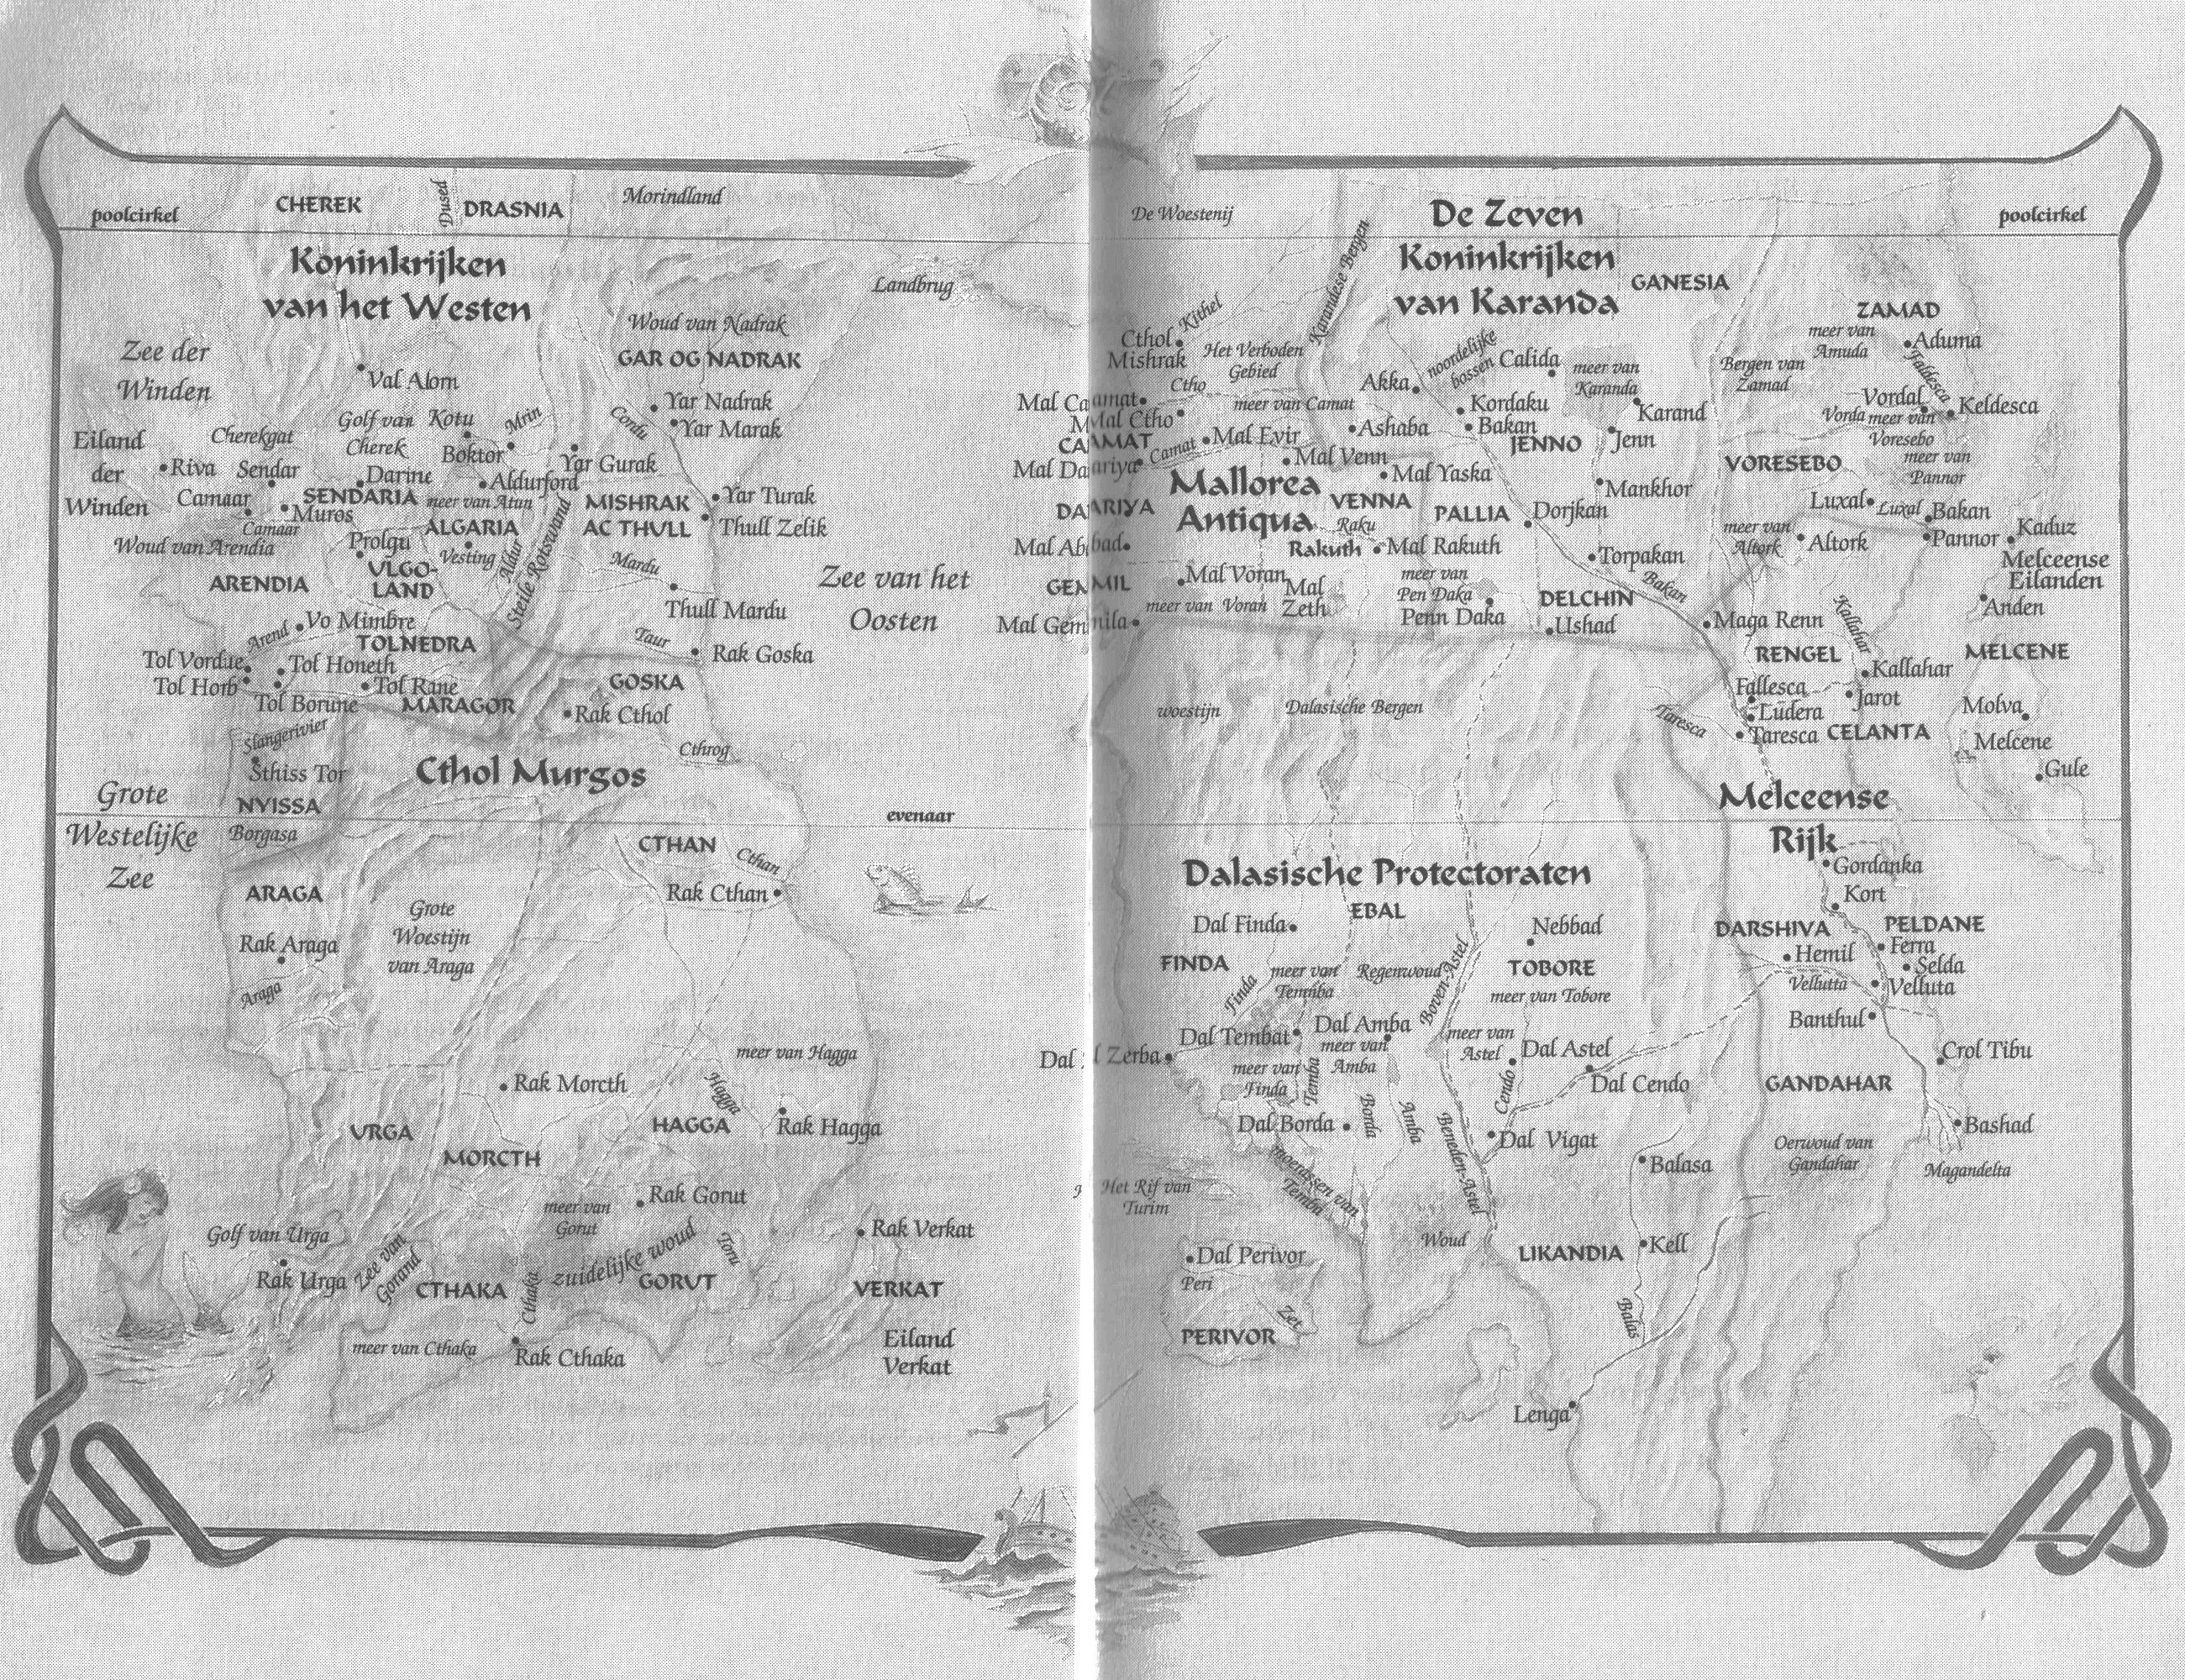 poolcirkel
CHEREK
Dused
DRASNIA
Morindland
Koninkrijken
van het Westen
Landbrug
Zee der
Winden
Woud van Nadrak
GAR OG NADRAK
Val Alorn
Yar Nadrak
Yar Marak
Cordu
Golf van
Cherek
Kotu
Mrin
Boktor
Yar Gurak
Cherekgat
Eiland
der
Winden
Riva
Sendar
Darine
Aldurford
Camaar
SENDARIA
Muros
Camaar
meer van Atun
ALGARIA
MISHRAK
AC THULL
Yar Turak
Thull Zelik
Woud van Arendia
Prolgu
Vesting
Aldur
Steile Rotswand
ULGO-
LAND
ARENDIA
Mardu
Thull Mardu
Zee van het
Oosten
Arend
Vo Mimbre
TOLNEDRA
Taur
Rak Goska
Tol Vordue
Tol Honeth
Tol Horb
Tol Rane
Tol Borune
MARAGOR
GOSKA
Rak Cthol
Slangerivier
Sthiss Tor
Cthrog
Cthol Murgos
NYISSA
Grote
Westelijke
Zee
evenaar
Borgasa
CTHAN
Cthan
Rak Cthan
ARAGA
Grote
Woestijn
van Araga
Rak Araga
Araga
meer van Hagga
Rak Morcth
Hagga
HAGGA
Rak Hagga
URGA
MORCTH
meer van
Gorut
Rak Gorut
Golf van Urga
Rak Urga
Zee van
Gorand
CTHAKA
Cthaka
zuidelijke woud
GORUT
Toru
Rak Verkat
VERKAT
Eiland
Verkat
meer van Cthaka
Rak Cthaka
De Woestenij
Karandese Bergen
De Zeven
Koninkrijken
van Karanda
GANESIA
poolcirkel
ZAMAD
meer van
Amuda
Aduma
Faldesca
Kithel
Cthol
Mishrak
Het Verboden
Gebied
Ctho
noordelijke
bossen
Calida
meer van
Karanda
Bergen van
Zamad
Akka
Mal Camat
Mal Ctho
meer van Camat
Kordaku
Bakan
Karand
Vordal
Keldesca
Vorda
meer van
Voresebo
CAMAT
Camat
Mal Evir
Ashaba
JENNO
Jenn
Mal Dariya
Mal Venn
Mal Yaska
VORESEBO
meer van
Pannor
Mallorea
Antiqua
VENNA
PALLIA
Mankhor
Dorjkan
Luxal
Luxal
Bakan
DARIYA
Raku
Rakuth
Mal Rakuth
meer van
Altork
Altork
Pannor
Kaduz
Mal Abbad
Torpakan
Melceense
Eilanden
GEMMIL
Mal Voran
meer van Voran
Mal
Zeth
meer van
Pen Daka
Penn Daka
DELCHIN
Bakan
Anden
Mal Gemnila
Ushad
Maga Renn
Kallahar
RENGEL
Kallahar
MELCENE
woestijn
Dalasische Bergen
Fallesca
Jarot
Molva
Taresca
Ludera
Taresca
CELANTA
Melcene
Gule
Melceense
Rijk
Gordanka
Dalasische Protectoraten
EBAL
Kort
Dal Finda
Nebbad
DARSHIVA
PELDANE
Ferra
FINDA
Finda
meer van
Temmba
Regenwoud
Boven-Astel
TOBORE
meer van Tobore
Hemil
Selda
Vellutta
Velluta
Dal Tembat
Dal Amba
meer van
Amba
meer van
Astel
Dal Astel
Banthul
Crol Tibu
Dal Zerba
meer van
Finda
Temba
Cendo
Dal Cendo
GANDAHAR
Dal Borda
Borda
Amba
Beneden-Astel
Dal Vigat
Bashad
Oerwoud van
Gandahar
Magandelta
Balasa
Het Rif van
Turim
moerassen van
Temba
Woud
Dal Perivor
Peri
Zet
PERIVOR
LIKANDIA
Kell
Balas
Lenga